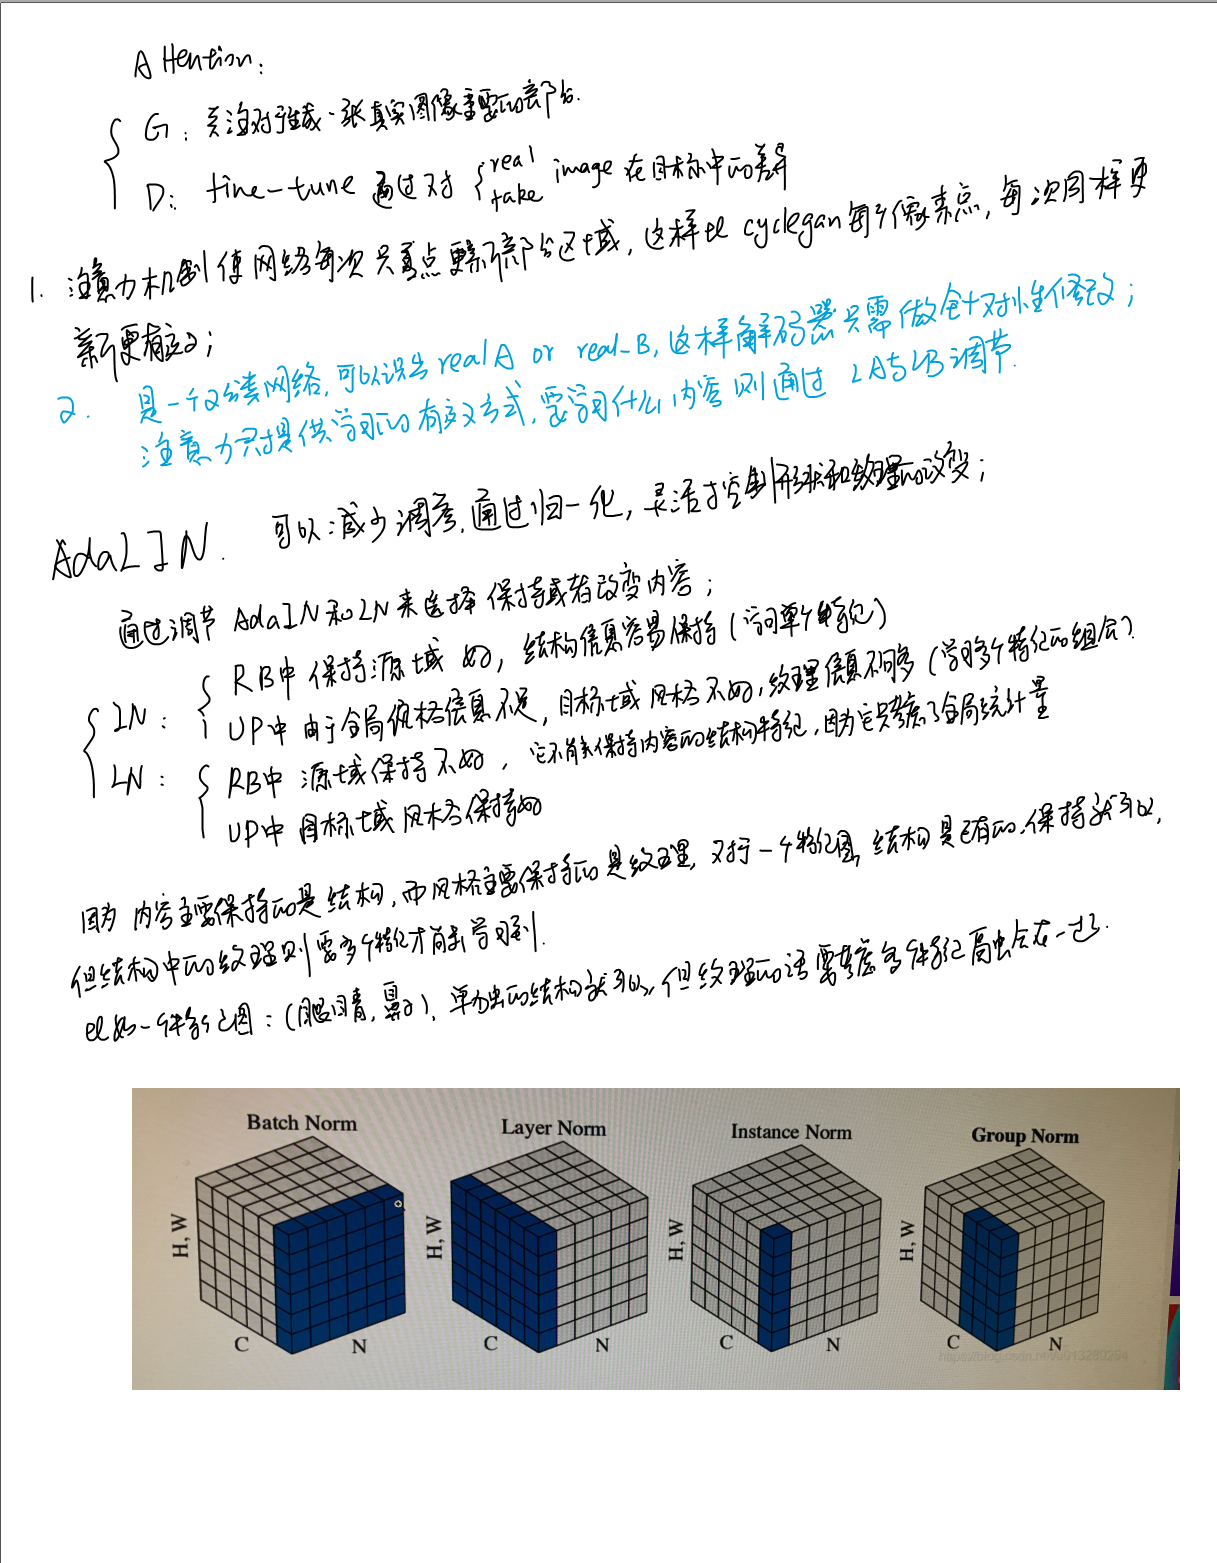 Attention:
G: 关注对于生成一张真实图像重要的部分.
D: fine-tune 通过对 real fake image 在目标中的差异
1. 注意力机制使网络每次只重点更新部分区域, 这样比 cyclegan 每个像素点, 每次同样更
新更有效;
2. 是一个2分类网络, 可以识出 real A or real_B, 这样解码器只需做针对性修改;
注意力只提供学习的有效方式, 要学习什么内容则通过 LA与LB调节.
AdaLIN. 可以减少调参, 通过归一化, 灵活控制形状和纹理的改变;
通过调节 AdaIN 和 LN 来选择保持或者改变内容;
IN: RB中 保持源域 好, 结构信息容易保持 (学习单个特征)
UP中 由于全局风格信息不足, 目标域风格不好, 纹理信息不够多 (学习多个特征的组合)
LN: RB中 源域保持不好, 它不能去保持内容的结构特征, 因为它只考虑了全局统计量
UP中 目标域风格保持好
因为 内容主要保持的是结构, 而风格主要保持的是纹理, 对于一个特征图, 结构是已有的, 保持就可以,
但结构中的纹理则需多个特征才能学习到.
比如一个特征图: (眼睛, 鼻子), 单独的结构就可以, 但纹理的话需考虑多个特征 一起.
Batch Norm
Layer Norm
Instance Norm
Group Norm
H, W
C
N
H, W
C
N
H, W
C
N
H, W
C
N